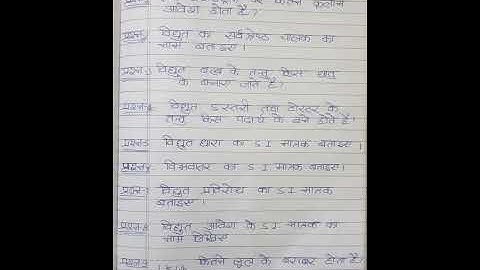 पर कितने कूलॉम
आवेश होता है?
प्रश्न- विद्युत का सर्वश्रेष्ठ चालक का
नाम बताइए।
प्रश्न-3 विद्युत बल्ब के तन्तु किस धातु
के बनाये जाते है?
प्रश्न-4 विद्युत इस्तरी तथा टोस्टर के
तन्तु किस पदार्थ के बने होते है?
प्रश्न-5 विद्युत धारा का S I मात्रक बताइए।
प्रश्न- विभवान्तर का S I मात्रक बताइए।
प्रश्न-7 विद्युत प्रतिरोध का S I मात्रक
बताइए।
प्रश्न-8 विद्युत आवेश के S I मात्रक का
नाम लिखिए
प्रश्न-9 कितने जूल के बराबर होता है?